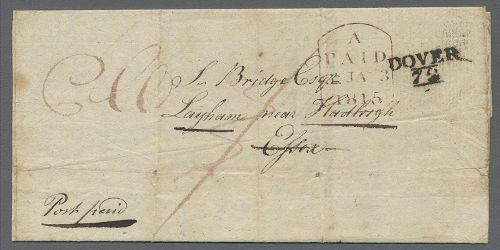 A
PAID
JA 3
1815
DOVER
75
Bridge Esqr
Layham near Hadleigh
Essex
Post paid